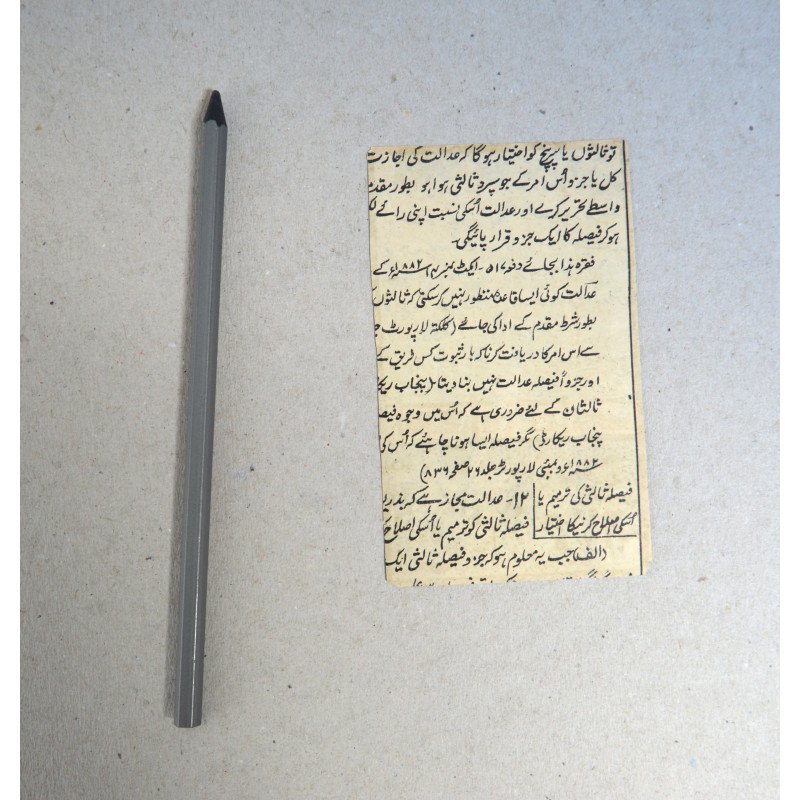 تو ثالثوں یا سرپنچ کو اختیار ہوگا کہ عدالت کی اجازت
کل یا جزو اُس امر کے جو سپرد ثالثی ہوا ہو بطور مقدم
واسطے تحریر کرے اور عدالت اُسکی نسبت اپنی رائے لک
ہو کر فیصلہ کا ایک جزو قرار پائیگی۔
فقرہ ہذا بجائے دفعہ ۵۱۷۔ ایکٹ نمبر ۱۴ ۱۸۸۲ء کے
عدالت کوئی ایسا قاعدہ منظور نہیں کرسکتی کہ ثالثوں
بطور شرط مقدم کے ادا کی جائے (کلکتہ لا رپورٹ ج
سے اس امر کا دریافت کرنا کہ بار ثبوت کس فریق کے
اور جزواً فیصلہ عدالت نہیں بنا دیتا۔ (پنجاب ریکا
ثالثان کے لئے ضروری ہے کہ اُس میں وجوہ فیص
پنجاب ریکارڈ) مگر فیصلہ ایسا ہونا چاہئے کہ اُس کی
۱۸۸۲ء و بمبئی لا رپورٹر جلد ۲۶ صفحہ ۸۳۶)
فیصلہ ثالثی کی ترمیم یا
اُسکی اصلاح کرنیکا اختیار
۱۲۔ عدالت مجاز ہے کہ بذری
فیصلہ ثالثی کو ترمیم یا اُسکی اصلاح ک
(الف) جب یہ معلوم ہو کہ جزو فیصلہ ثالثی ایک